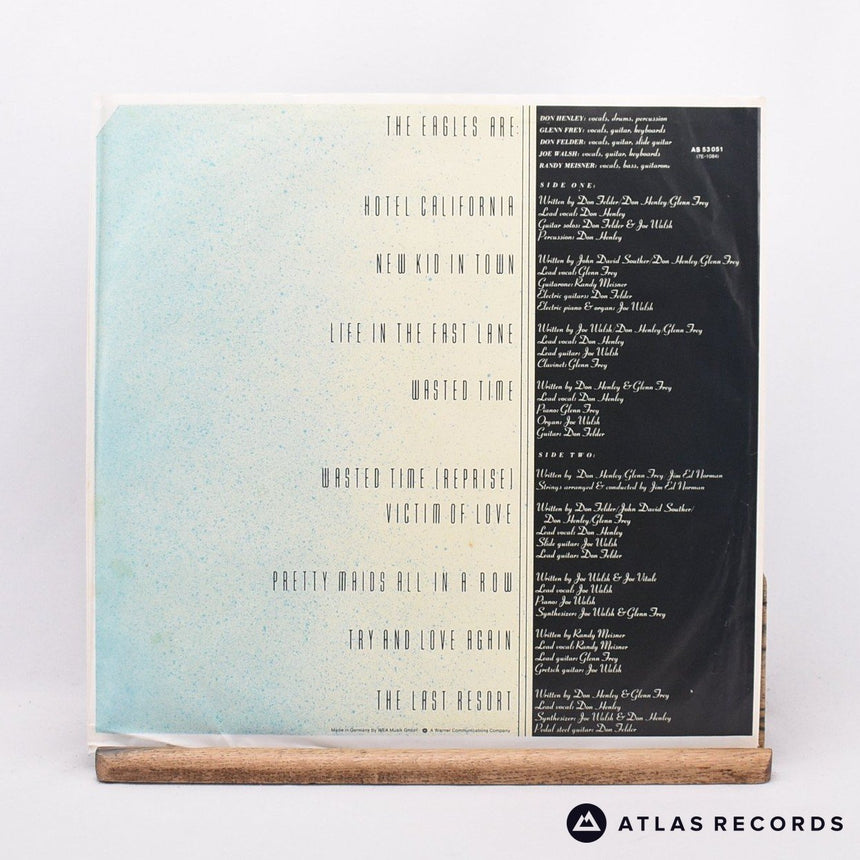 THE EAGLES ARE:
DON HENLEY: vocals, drums, percussion
GLENN FREY: vocals, guitar, keyboards
DON FELDER: vocals, guitar, slide guitar
JOE WALSH: vocals, guitar, keyboards
RANDY MEISNER: vocals, bass, guitarone
AS 53 051
(7E-1084)
SIDE ONE:
HOTEL CALIFORNIA
Written by Don Felder/Don Henley/Glenn Frey
Lead vocal: Don Henley
Guitar solos: Don Felder & Joe Walsh
Percussion: Don Henley
NEW KID IN TOWN
Written by John David Souther/Don Henley/Glenn Frey
Lead vocal: Glenn Frey
Guitarone: Randy Meisner
Electric guitars: Don Felder
Electric piano & organ: Joe Walsh
LIFE IN THE FAST LANE
Written by Joe Walsh/Don Henley/Glenn Frey
Lead vocal: Don Henley
Lead guitar: Joe Walsh
Clavinet: Glenn Frey
WASTED TIME
Written by Don Henley & Glenn Frey
Lead vocal: Don Henley
Piano: Glenn Frey
Organ: Joe Walsh
Guitar: Don Felder
SIDE TWO:
WASTED TIME (REPRISE)
Written by Don Henley/Glenn Frey/Jim Ed Norman
Strings arranged & conducted by Jim Ed Norman
VICTIM OF LOVE
Written by Don Felder/John David Souther/
Don Henley/Glenn Frey
Lead vocal: Don Henley
Slide guitar: Joe Walsh
Lead guitar: Don Felder
PRETTY MAIDS ALL IN A ROW
Written by Joe Walsh & Joe Vitale
Lead vocal: Joe Walsh
Piano: Joe Walsh
Synthesizer: Joe Walsh & Glenn Frey
TRY AND LOVE AGAIN
Written by Randy Meisner
Lead vocal: Randy Meisner
Lead guitar: Glenn Frey
Gretsch guitar: Joe Walsh
THE LAST RESORT
Written by Don Henley & Glenn Frey
Lead vocal: Don Henley
Synthesizer: Joe Walsh & Don Henley
Pedal steel guitar: Don Felder
Made in Germany by WEA Musik GmbH A Warner Communications Company
ATLAS RECORDS